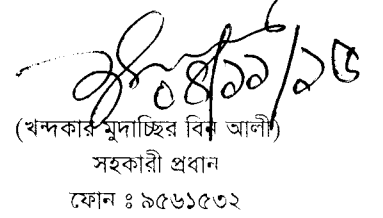 ০৪/১১/১৫
(খন্দকার মুদাচ্ছির বিন আলী)
সহকারী প্রধান
ফোন ঃ ৯৫৬১৫৩২